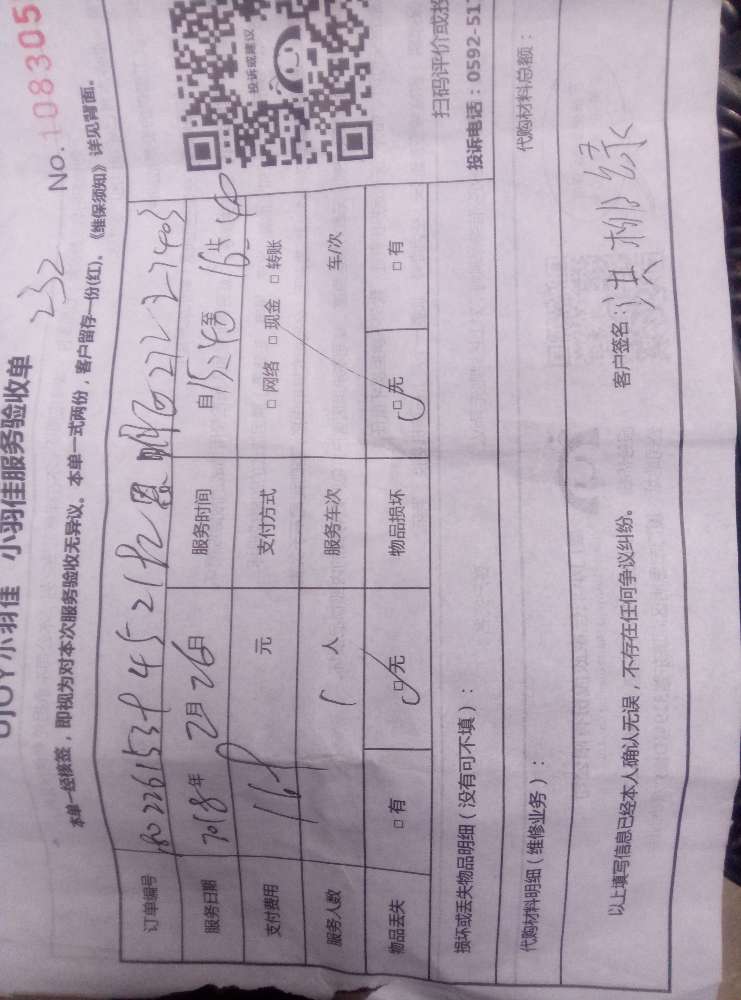 UJOY小羽佳 小羽佳服务验收单
232 No.108305
本单一经核签，即视为对本次服务验收无异议。本单一式两份，客户留存一份(红)、《维保须知》详见背面。
订单编号
服务日期 2018年 2月 26日 服务时间 自 15:40 至 16:40 共
支付费用 元 支付方式 □ 网络 □ 现金 □ 转账
服务人数 1 人 服务车次 车/次
物品丢失 □ 有 □ 无 物品损坏 □ 无 □ 有
损坏或丢失物品明细（没有可不填）：
代购材料明细（维修业务）： 代购材料总额：
以上填写信息已经本人确认无误，不存在任何争议纠纷。 客户签名：洪柳绿
投诉或建议
扫码评价或投
投诉电话：0592-517